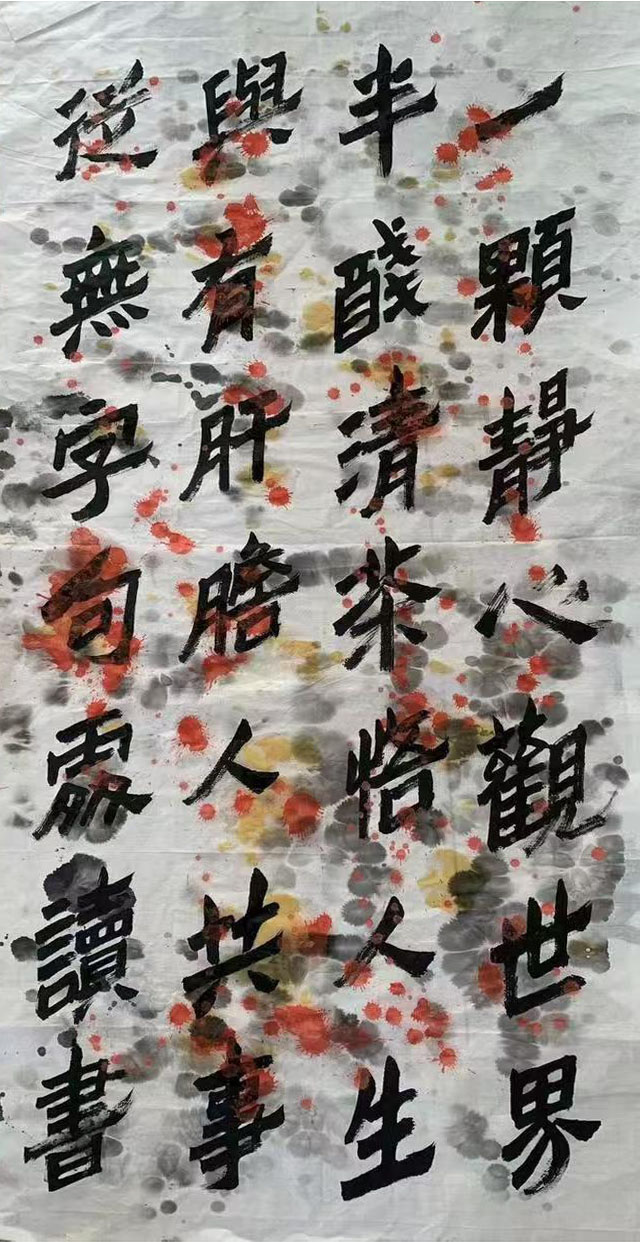 一顆靜心觀世界
半醆清茶悟人生
與有肝膽人共事
從無字句處讀書